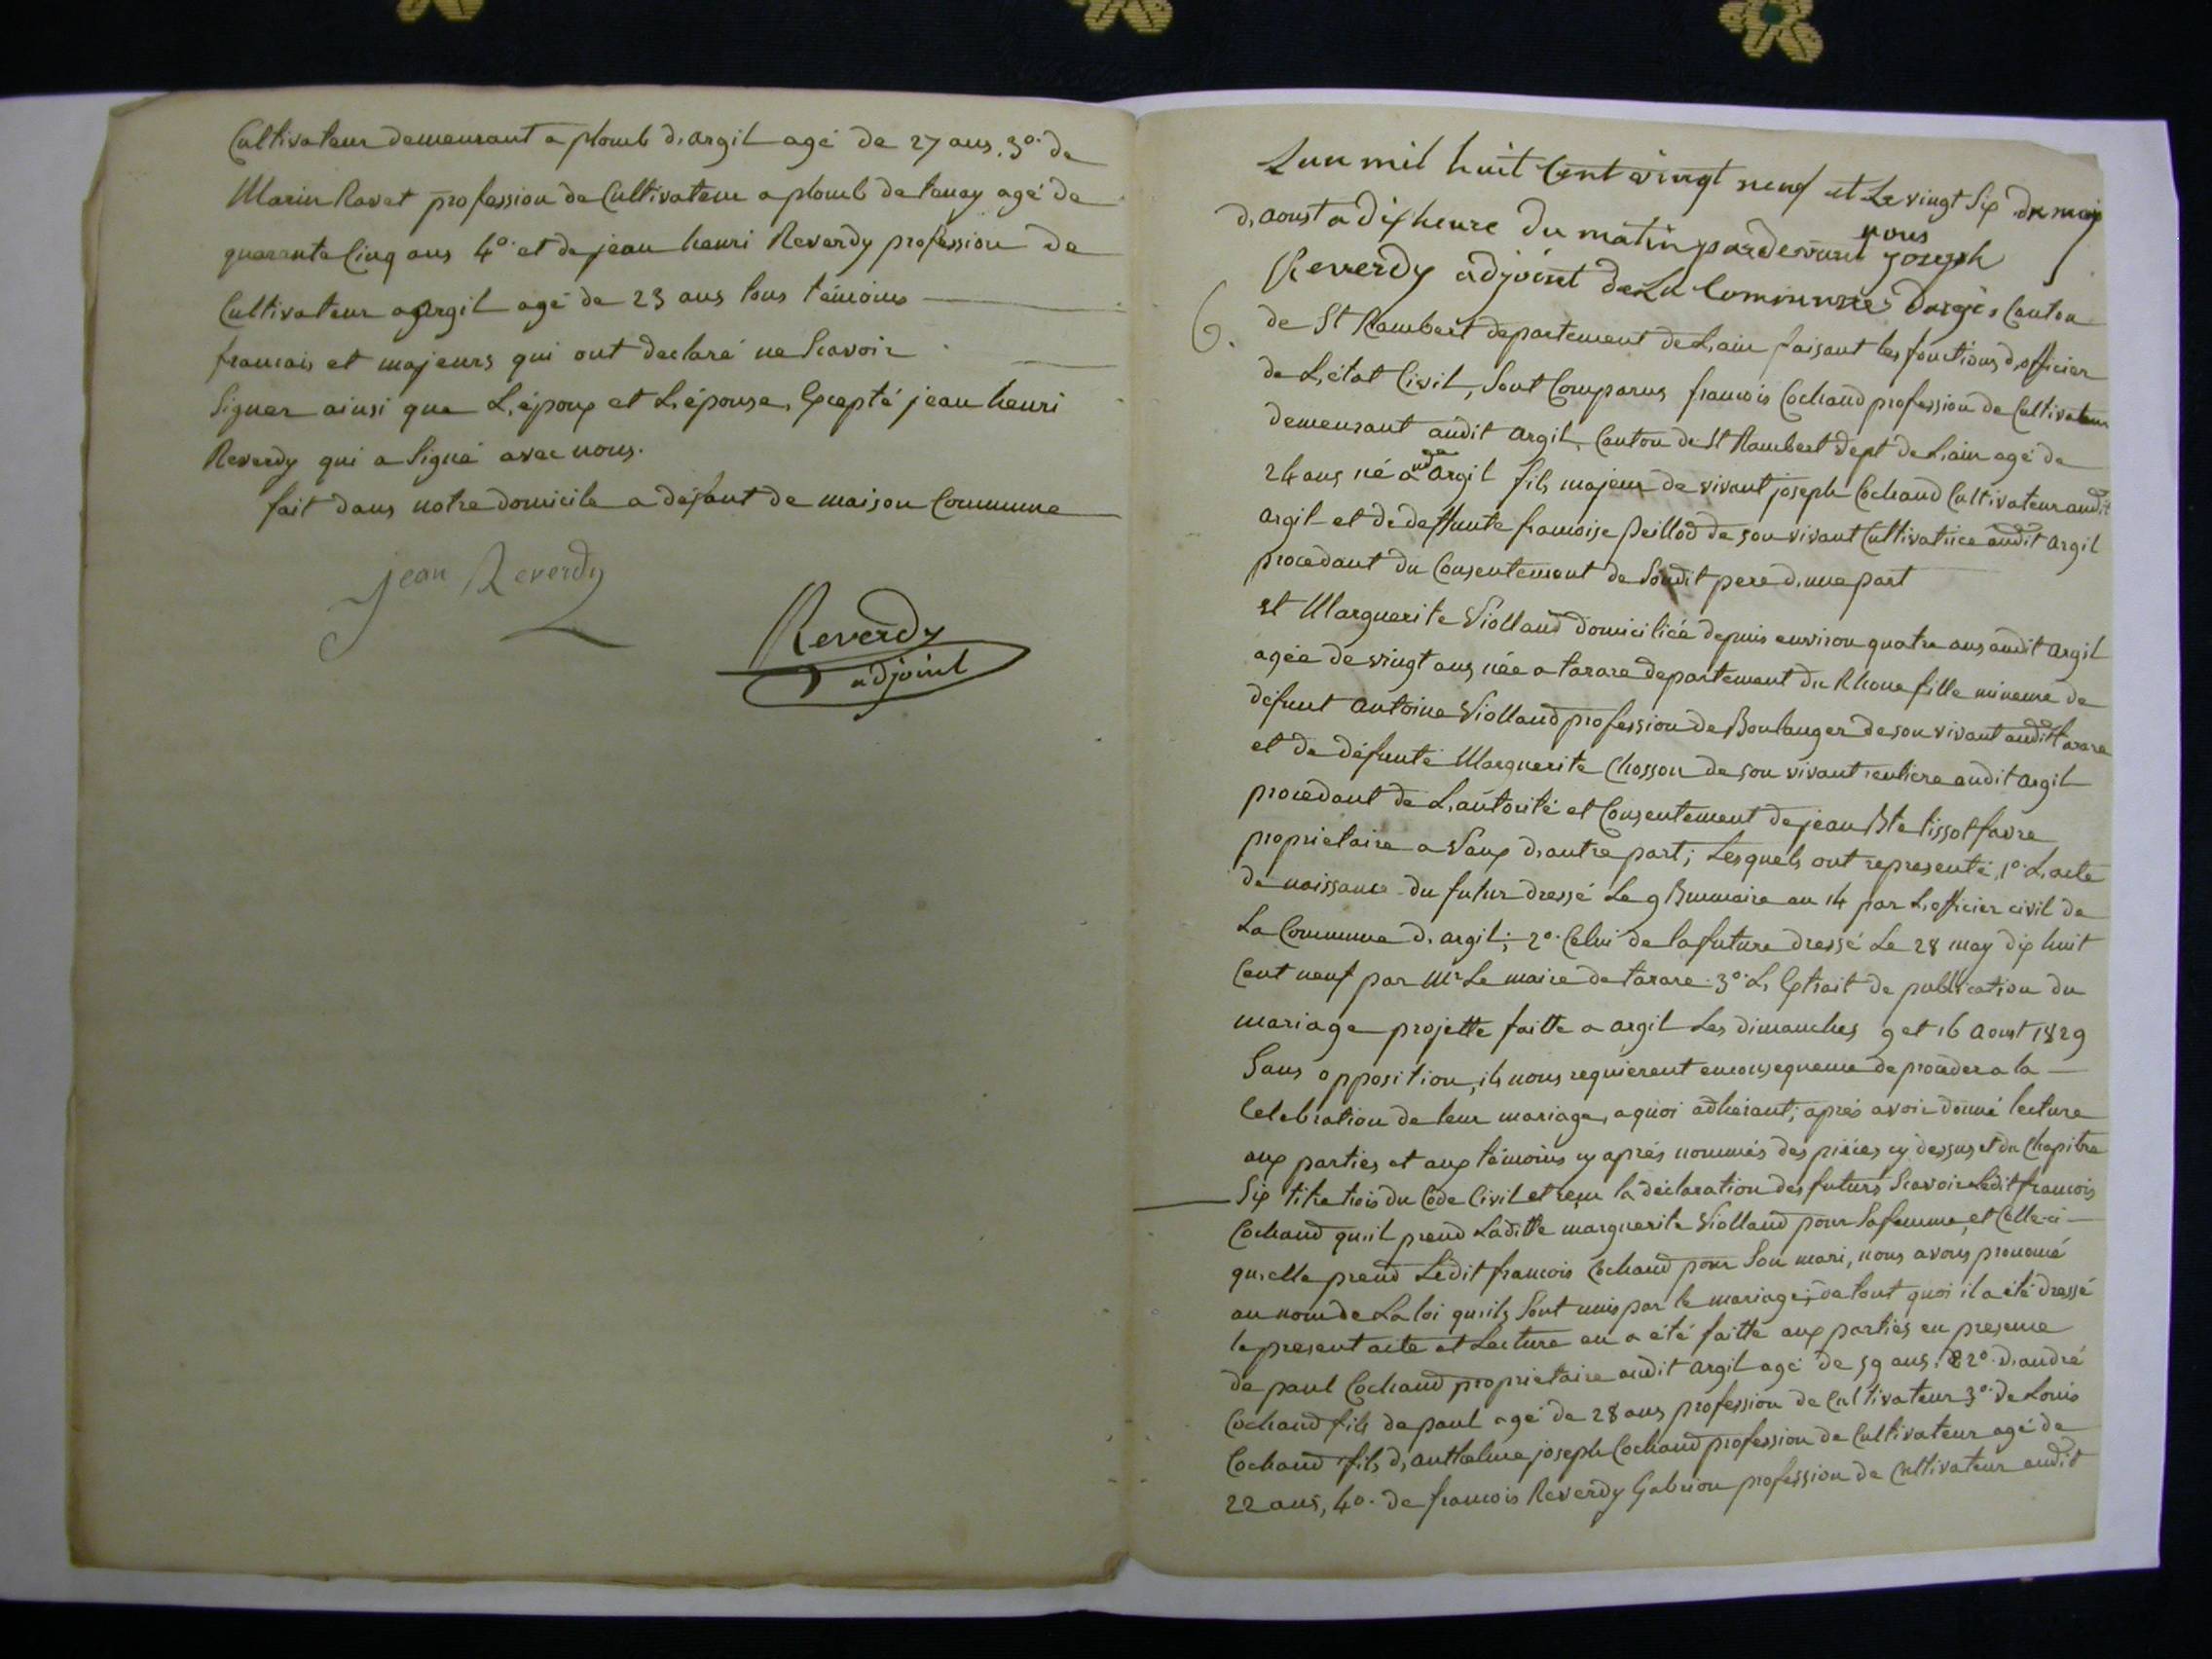 Cultivateur demeurant a plomb d'argil agé de 27 ans. 3°. de
Marin Ravet profession de Cultivateur a plomb de tenay agé de
quarante Cinq ans 4°. et de jean henri Reverdy profession de
Cultivateur a argil agé de 23 ans tous témoins
francais et majeurs qui ont declaré ne Scavoir
Signer ainsi que L'époux et L'épouse, Excepté jean henri
Reverdy qui a Signé avec nous.
fait dans notre domicile a défaut de maison Commune
jean Reverdy
Reverdy
adjoint
Lan mil huit Cent vingt neuf et Le vingt Six du mois
d'aoust a dix heure du matin pardevant nous joseph
Reverdy adjoint de La Commune dargis Canton
6.
de St Rambert departement de L'ain faisant les fonctions d'officier
de L'état Civil, Sont Comparus francois Cochand profession de Cultivateur
demeurant audit argil, Canton de St Rambert dept de L'ain agé de
24 ans né a argil fils majeur de vivant joseph Cochand Cultivateur audit
argil et de deffunte francoise Peillod de son vivant Cultivatrice audit argil
procedant du Consentement de Sondit pere d'une part
et Marguerite Violland domiciliée depuis environ quatre ans audit argil
agée de vingt ans née a tarare departement du Rhone fille mineure de
défunt antoine Violland profession de Boulanger de son vivant audit tarare
et de défunte Marguerite Chosson de son vivant rentiere audit argil
procedant de L'autorité et Consentement de jean Bte tissot favre
proprietaire a Vaux d'autre part; Lesquels ont representé, 1°. L'acte
de naissance du futur dressé Le 9 Brumaire an 14 par L'officier civil de
La Commune d'argil; 2°. Celui de la future dressé Le 28 may dix huit
Cent neuf par Mr Le maire de tarare. 3°. L'Extrait de publication du
mariage projetté faitte a argil Les dimanches 9 et 16 aoust 1829
Sans opposition, ils nous requierent en consequence de proceder a la
Celebration de leur mariage, a quoi adherant; après avoir donné lecture
aux parties et aux témoins cy après nommés des pièces cy dessus et du Chapitre
Six titre trois du Code Civil et reçu la déclaration des futurs Scavoir Ledit francois
Cochand qu'il prend Laditte marguerite Violland pour Sa femme, et Celle-ci
qu'elle prend Ledit francois Cochand pour Son mari, nous avons prononcé
au nom de La loi qu'ils Sont unis par le mariage; de tout quoi il a été dressé
le present acte et Lecture en a été faitte aux parties en presence
de paul Cochand proprietaire audit argil agé de 59 ans. 2°. d'andré
Cochand fils de paul agé de 28 ans profession de Cultivateur 3°. de Louis
Cochand fils d'anthelme joseph Cochand profession de Cultivateur agé de
22 ans, 4°. de francois Reverdy Gabrion profession de Cultivateur audit